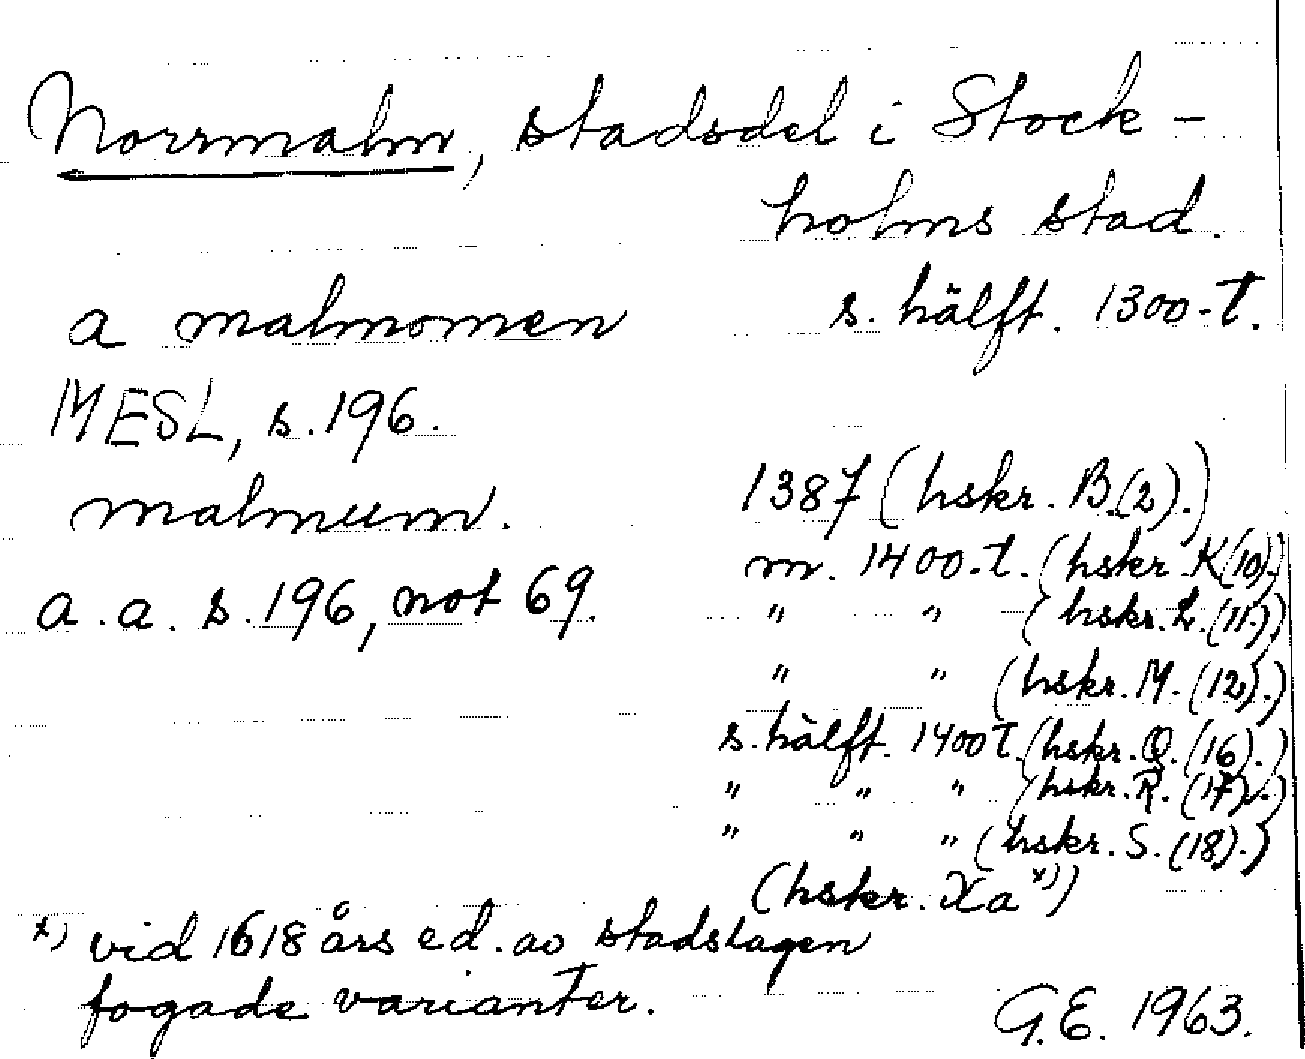 Norrmalm, stadsdel i Stock-
holms stad.
a malmomen s. hälft. 1300-t.
MESL, s. 196.
malmum. 1387 (hskr. B.(2).)
m. 1400-t. (hskr. K(10).)
a. a. s. 196, not 69. " " (hskr. L. (11).)
" " (hskr. M. (12).)
s. hälft. 1400 t. (hskr. Q. (16).)
" " " (hskr. R. (17).)
" " " (hskr. S. (18).)
(hskr. Xa x))
x) vid 1618 års ed. av stadslagen
fogade varianter.
G.E. 1963.